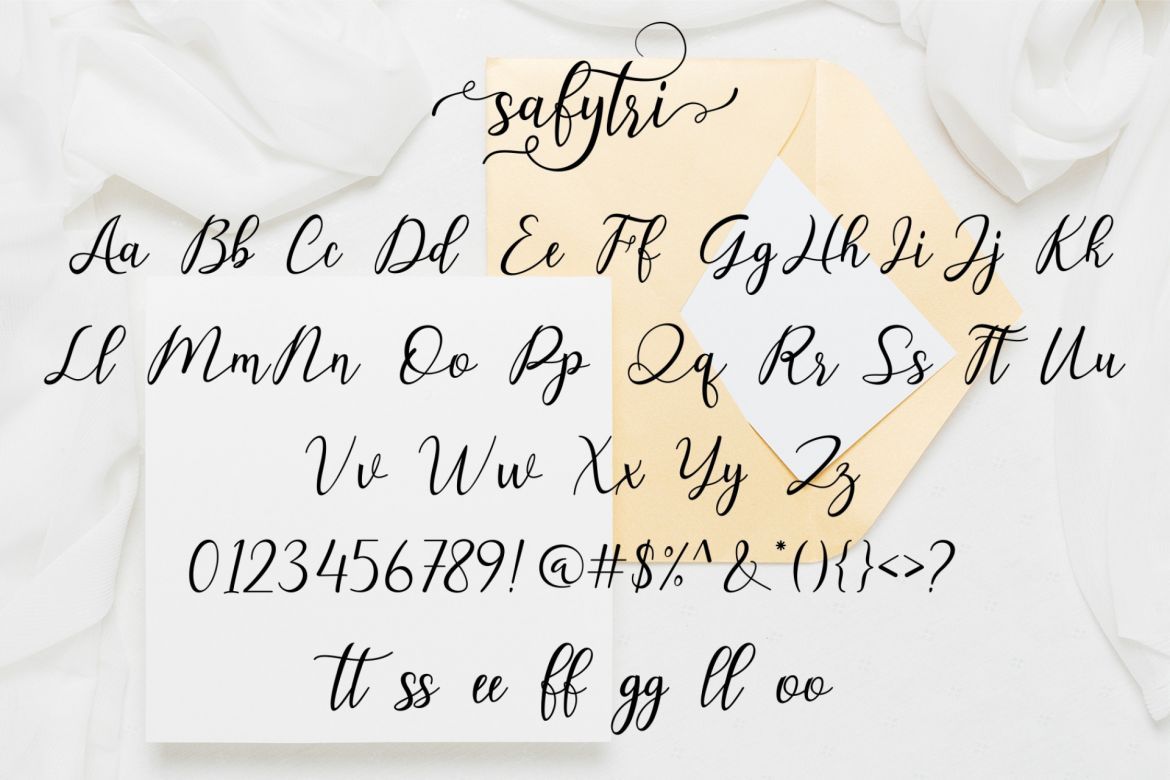 safytri
Aa Bb Cc Dd Ee Ff Gg Hh Ii Jj Kk
Ll Mm Nn Oo Pp Qq Rr Ss Tt Uu
Vv Ww Xx Yy Zz
0123456789!@#$%^&*(){}<>?
tt ss ee ff gg ll oo